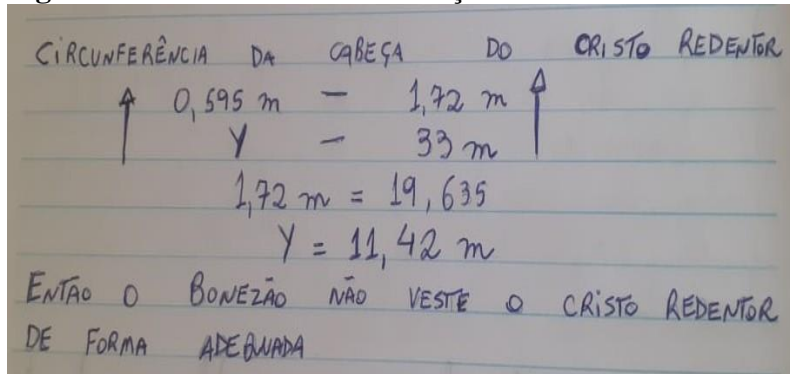 CIRCUNFERÊNCIA DA CABEÇA DO CRISTO REDENTOR
0,595 m — 1,72 m
Y — 33 m
1,72 m = 19,635
Y = 11,42 m
ENTÃO O BONEZÃO NÃO VESTE O CRISTO REDENTOR
DE FORMA ADEQUADA